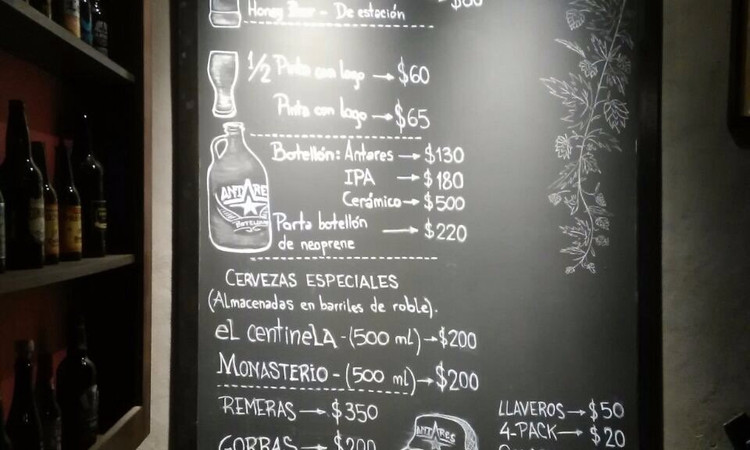 Honey Beer - De estación
$60
1/2 Pinta con logo → $60
Pinta con logo → $65
Botellón: Antares → $130
ANTARES
IPA → $180
Cerámico → $500
BOTELLÓN
Porta botellón
de neoprene → $220
CERVEZAS ESPECIALES
(Almacenadas en barriles de roble).
EL CENTINELA - (500 ml) → $200
MONASTERIO - (500 ml) → $200
REMERAS → $350
LLAVEROS → $50
GORRAS → $200
ANTARES
4-PACK → $20